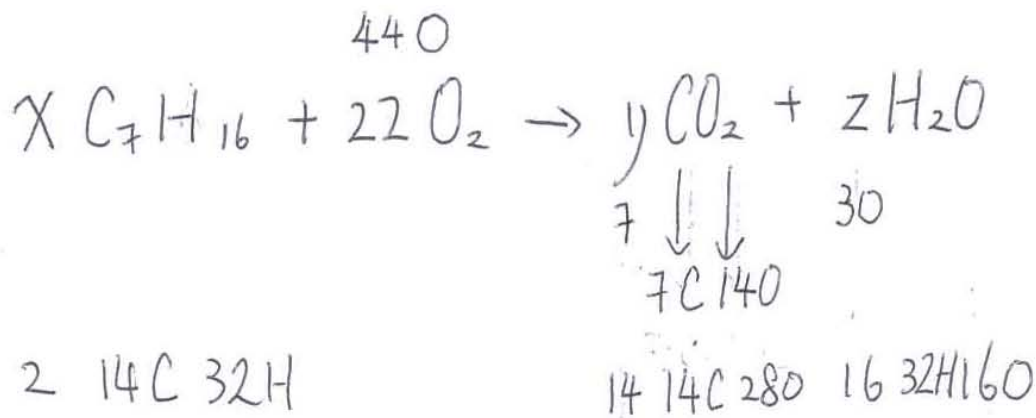 44O
x C₇H₁₆ + 22 O₂ → y CO₂ + z H₂O
7 ↓ ↓ 30
7C 14O
2 14C 32H 14 14C 28O 16 32H 16O